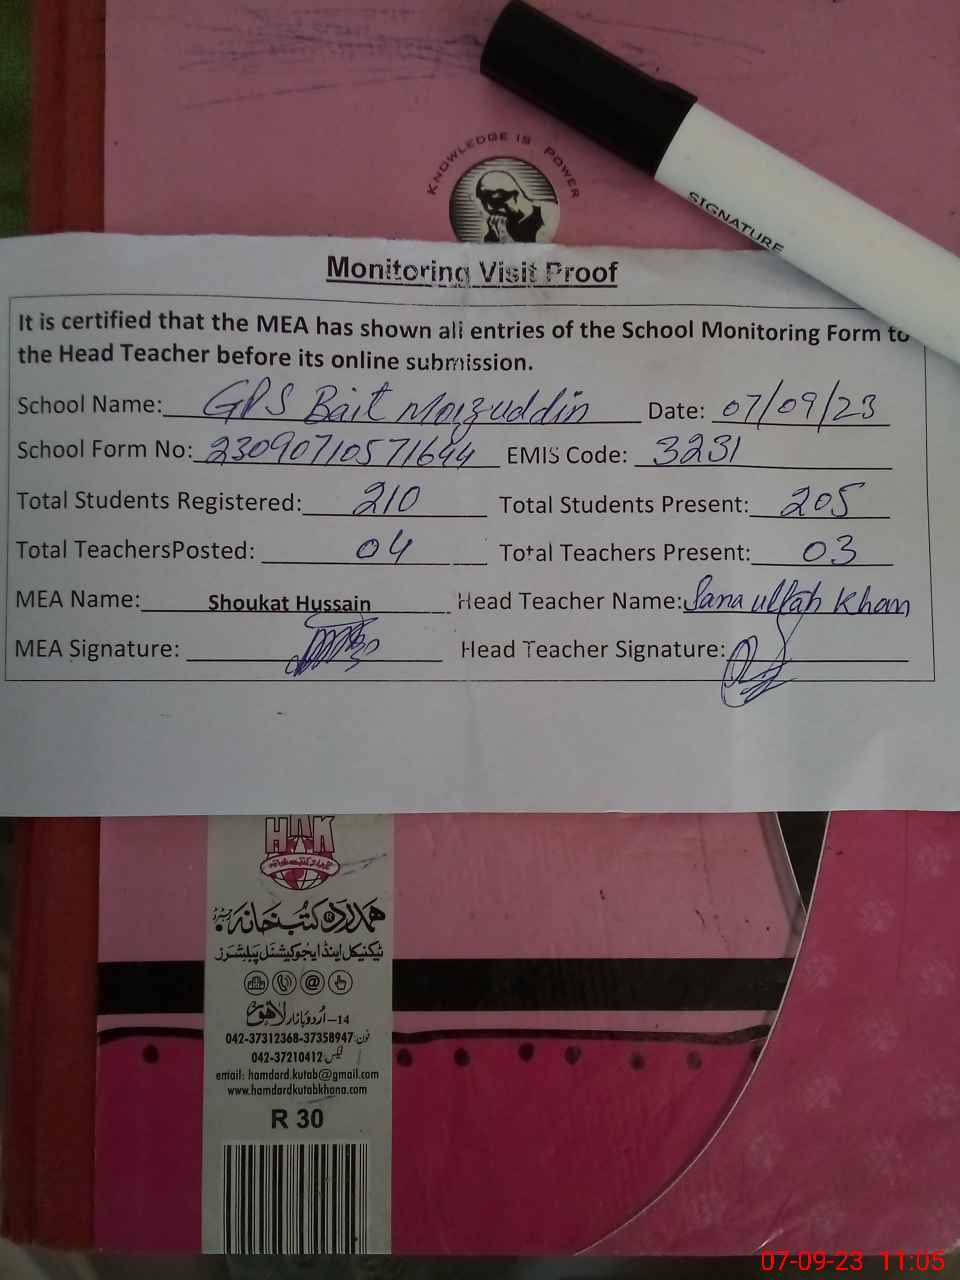 KNOWLEDGE IS POWER
SIGNATURE
Monitoring Visit Proof
It is certified that the MEA has shown all entries of the School Monitoring Form to
the Head Teacher before its online submission.
School Name: GPS Bait Moizuddin Date: 07/09/23
School Form No: 23090710571644 EMIS Code: 3231
Total Students Registered: 210 Total Students Present: 205
Total TeachersPosted: 04 Total Teachers Present: 03
MEA Name: Shoukat Hussain Head Teacher Name: Sana ullah Khan
MEA Signature: Head Teacher Signature:
HAK
ہمدرد کتب خانہ
ٹیکنیکل اینڈ ایجوکیشنل پبلشرز
14-اُردو بازار لاہور
فون: 042-37312368-37358947
فیکس: 042-37210412
email: hamdard.kutab@gmail.com
www.hamdardkutabkhana.com
R 30
07-09-23 11:05